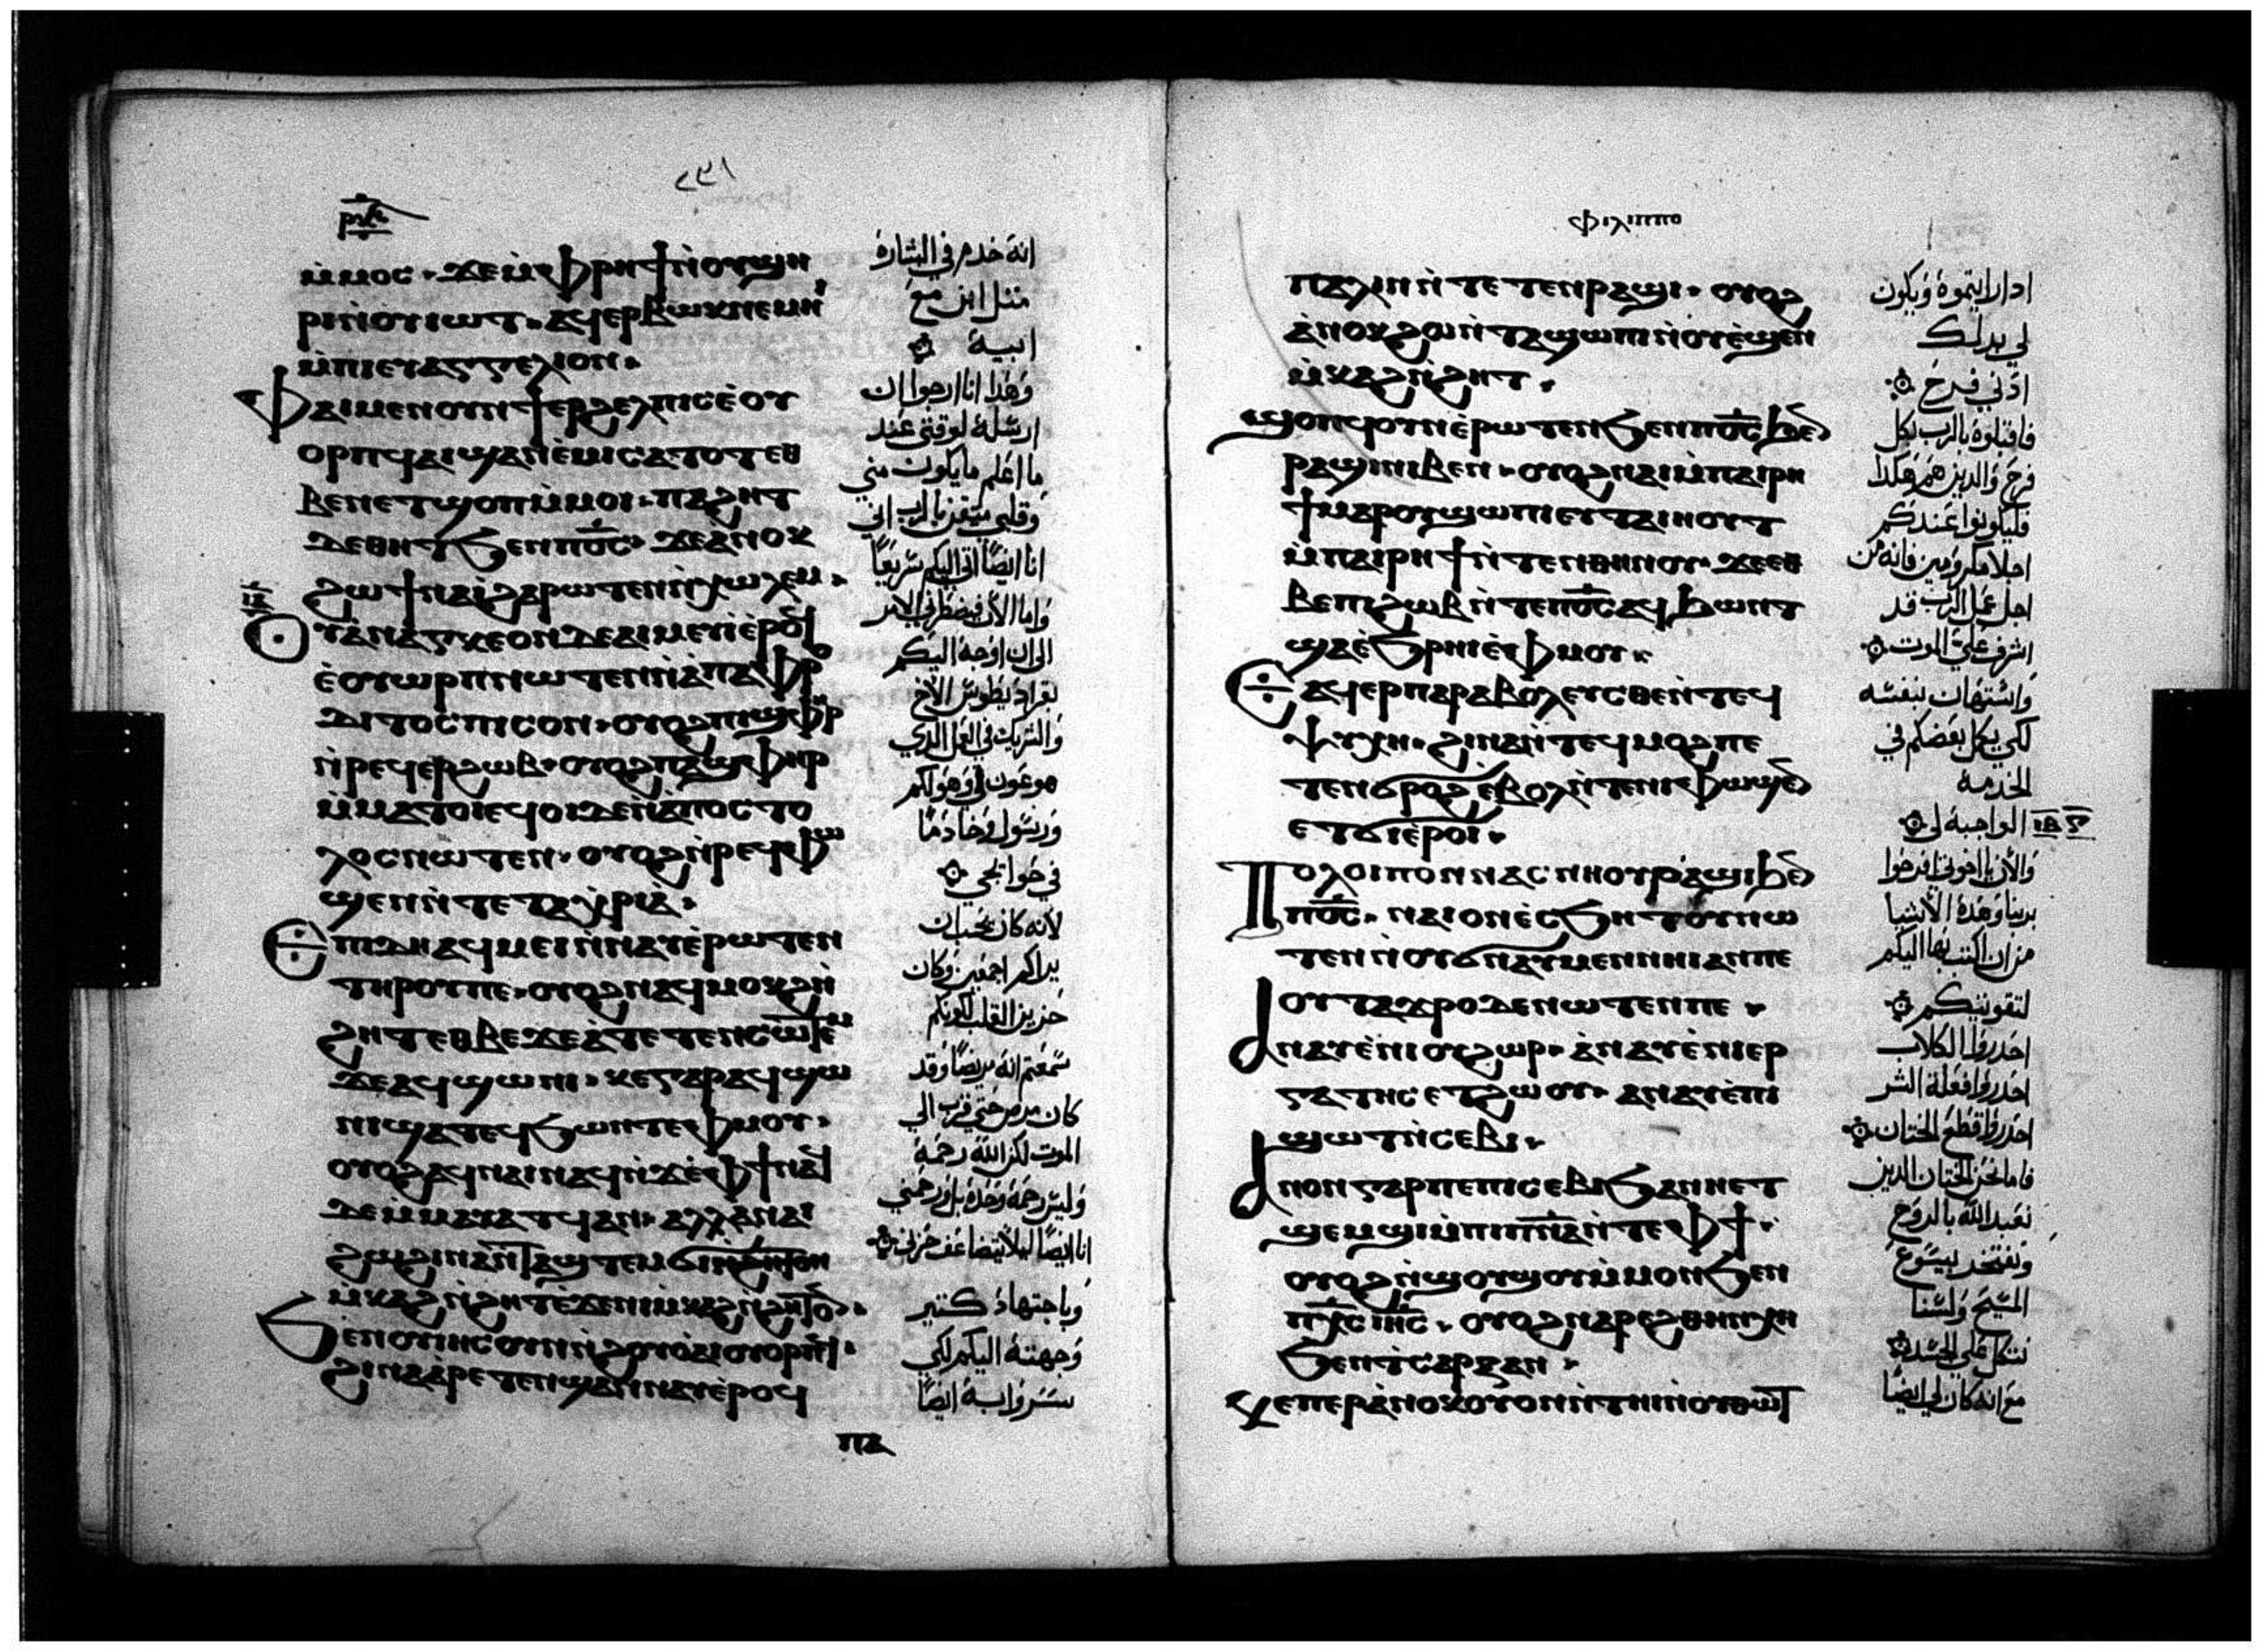 ⲙ̀ⲙⲟⲥ· ϫⲉⲙ̀ⲫⲣⲏϯⲛ̀ⲟⲩϣⲏ
ⲣⲓⲛ̀ⲟⲩⲓⲱⲧ· ⲁϥⲉⲣⲃⲱⲕⲛⲉⲙⲏⲓ
ⲙ̀ⲡⲓⲉⲩⲁⲅⲅⲉⲗⲓⲟⲛ·
ⲫⲁⲓⲙⲉⲛⲟⲩⲛϯⲉⲣϩⲉⲗⲡⲓⲥⲉ̀ⲟⲩ
ⲟⲣⲡϥⲁⲓϣⲁⲛⲉ̀ⲙⲓⲥⲁⲧⲟⲧⲉⲑ
ⲃⲉⲛⲉⲧϣⲟⲡⲙ̀ⲙⲟⲓ· ⲡⲁϩⲏⲧ
ⲇⲉⲑⲏⲧϧⲉⲛⲡⲟ̅ⲥ̅· ϫⲉⲁ̀ⲛⲟⲕ
ϩⲱϯⲛⲁⲓ̀ϩⲁⲣⲱⲧⲉⲛⲛ̀ⲭⲱⲗⲉⲙ·
ⲟⲩⲁ̀ⲛⲁⲅⲕⲉⲟⲛⲇⲉⲁⲓⲙⲉⲩⲓ̀ⲉ̀ⲣⲟϥ
ⲉ̀ⲟⲩⲱⲣⲡⲛⲱⲧⲉⲛⲛ̀ⲁ̀ⲡⲁⲫⲣⲟ
ⲇⲓⲧⲟⲥⲡⲓⲥⲟⲛ· ⲟⲩⲟϩⲡⲓϣⲫⲏⲣ
ⲛ̀ⲣⲉϥⲉⲣϩⲱⲃ· ⲟⲩⲟϩⲡⲁϣⲫⲏⲣ
ⲙ̀ⲙⲁⲧⲟⲓⲉϥⲟⲓⲇⲉⲛ̀ⲁ̀ⲡⲟⲥⲧⲟ
ⲗⲟⲥⲛⲱⲧⲉⲛ· ⲟⲩⲟϩⲛ̀ⲣⲉϥⲫⲱ
ϣⲉⲛⲛ̀ⲧⲉⲧⲁⲭⲣⲓⲁ̀·
ⲉⲡⲓⲇⲏⲁϥⲙⲉⲓⲛ̀ⲛⲁⲩⲉ̀ⲣⲱⲧⲉⲛ
ⲧⲏⲣⲟⲩⲡⲉ· ⲟⲩⲟϩⲛⲁϥⲙⲟⲕϩⲛ̀
ϩⲏⲧⲉⲑⲃⲉϫⲉⲁ̀ⲧⲉⲧⲉⲛⲥⲱⲧⲉⲙ
ϫⲉⲁϥϣⲱⲛⲓ· ⲕⲉⲅⲁⲣⲁϥϣⲱ
ⲛⲓϣⲁⲧⲉϥϧⲱⲛⲧⲉ̀ⲫⲙⲟⲩ·
ⲟⲩⲟϩⲁϥⲛⲁⲓⲛⲁϥⲛ̀ϫⲉⲫϯⲛⲁϥ
ⲇⲉⲙ̀ⲙⲁⲩⲁⲧϥⲁⲛ· ⲁⲗⲗⲁ̀ⲛⲁⲓ
ϩⲱϩⲓⲛⲁⲛ̀ⲧⲁϣⲧⲉⲙϭⲓⲛ̀ⲟⲩ
ⲙ̀ⲕⲁϩⲛ̀ϩⲏⲧⲉ̀ϫⲉⲛⲙ̀ⲕⲁϩⲛ̀ϩⲏⲧ·
ϧⲉⲛⲟⲩⲓⲏⲥⲟⲩⲛⲛ̀ϩⲟⲩⲟ̀ⲁⲓⲟⲩⲟⲣⲡϥ·
ϩⲓⲛⲁⲁ̀ⲣⲉⲧⲉⲛϣⲁⲛⲛⲁⲩⲉ̀ⲣⲟϥ
ⲡⲁ
انه خدم في البشارة
مثل ابن مع
ابيه
وهذا انا ارجوا ان
ارسله لوقتي عند
ما اعلم ما يكون مني
وقلبي متيقن بالرب اني
انا ايضًا اتي اليكم سريعًا
واما الان فيضطرني الامر
الى ان اوجه اليكم
بفراديطوس الاخ
والشريك في العمل الذي
هو عون لي وهو لكم
ورسول وخادمًا
في حوايجي
لانه كان يحب ان
يراكم اجمعين وكان
حزين القلب لكونكم
سمعتم انه مريضًا وقد
كان مرض حتي قرب الي
الموت لكن الله رحمه
وليس رحمه وحده بل ورحمني
انا ايضًا ليلا يتضاعف حزني
وباجتهاد كتير
وجهته اليكم لكي
تسروا به ايضًا
ⲫⲓⲗⲓⲡⲡⲟ
ⲡⲁⲗⲓⲛⲛ̀ⲧⲉⲧⲉⲛⲣⲁϣⲓ· ⲟⲩⲟϩ
ⲁ̀ⲛⲟⲕϩⲱⲛ̀ⲧⲁϣⲱⲡⲓⲛ̀ⲟⲩⲉ̀ϣⲉⲛ
ⲙ̀ⲕⲁϩⲛ̀ϩⲏⲧ·
ϣⲟⲡϥⲟⲩⲛⲉ̀ⲣⲱⲧⲉⲛϧⲉⲛⲡⲟ̅ⲥ̅ϧⲉⲛ
ⲣⲁϣⲓⲛⲓⲃⲉⲛ· ⲟⲩⲟϩⲛⲁⲓⲙ̀ⲡⲁⲓⲣⲏ
ϯⲙⲁⲣⲟⲩϣⲱⲡⲓⲉⲩⲧⲁⲓⲏⲟⲩⲧ
ⲙ̀ⲡⲁⲓⲣⲏϯⲛ̀ⲧⲉⲛⲑⲏⲛⲟⲩ· ϫⲉⲉⲑ
ⲃⲉⲡⲓϩⲱⲃⲛ̀ⲧⲉⲡⲟ̅ⲥ̅ⲁϥϧⲱⲛⲧ
ϣⲁⲉ̀ϧⲣⲏⲓⲉ̀ⲫⲙⲟⲩ·
ⲉⲁϥⲉⲣⲡⲁⲣⲁⲃⲟⲗⲉⲩⲥⲑⲉⲛ̀ⲧⲉϥ
ⲯⲩⲭⲏ· ϩⲓⲛⲁⲛ̀ⲧⲉϥⲙⲟϩⲡⲉ
ⲧⲉⲛϭⲣⲟϩⲉ̀ⲃⲟⲗⲛ̀ⲧⲉⲛⲓⲫⲱϣⲉⲛ
ⲉⲧϭⲓⲉ̀ⲣⲟⲓ·
ⲡⲟⲗⲟⲓⲡⲟⲛⲛⲁⲥⲛⲏⲟⲩⲣⲁϣⲓϧⲉⲛ
ⲡⲟ̅ⲥ̅· ⲛⲁⲓⲟⲛⲉ̀ⲥϧⲏⲧⲟⲩⲛⲱ
ⲧⲉⲛⲛ̀ⲟⲩϭⲛⲁⲩⲙⲉⲛⲛⲏⲓⲁⲛⲡⲉ
ⲟⲩⲧⲁϫⲣⲟⲇⲉⲛⲱⲧⲉⲛⲡⲉ·
ⲁⲛⲁⲩⲉ̀ⲛⲓⲟⲩϩⲱⲣ· ⲁ̀ⲛⲁⲩⲉ̀ⲛⲓⲉⲣ
ⲅⲁⲧⲏⲥⲉⲧϩⲱⲟⲩ· ⲁⲛⲁⲩⲉ̀ⲡⲓ
ϣⲱⲧⲛ̀ⲥⲉⲃⲓ·
ⲁⲛⲟⲛⲅⲁⲣⲡⲉⲡⲓⲥⲉⲃⲓϧⲁⲛⲏⲉⲧ
ϣⲉⲙϣⲓⲙ̀ⲡⲓⲡ̅ⲛ̅ⲁ̅ⲛ̀ⲧⲉⲫϯ·
ⲟⲩⲟϩⲛ̀ϣⲟⲩϣⲟⲩⲙ̀ⲙⲟⲛϧⲉⲛ
ⲡⲭ̅ⲥ̅ⲓⲏ̅ⲥ̅· ⲟⲩⲟϩⲛⲁⲣⲉϩⲑⲏⲛⲭⲏ
ϧⲉⲛⲧⲥⲁⲣⲝⲁⲛ·
ⲕⲉⲡⲉⲣⲁ̀ⲛⲟⲕⲟⲩⲟⲛⲛ̀ⲧⲏⲓⲛ̀ⲟⲩⲑⲱⲧ
اذا رايتموه ويكون
لي بذلك
اذني فرح
فاقبلوه بالرب بكل
فرح والدين هم هكدا
فليكونوا عندكم
اجلا مكرمين فانه من
اجل عمل الرب قد
اشرف علي الموت
واستهان بنفسه
لكي يكمل نقصكم في
الخدمه
الواجبه لي
والان يا اخوتي افرحوا
بربنا وهذه الاشيا
من ان اكتب بها اليكم
لتقوتكم
احدروا الكلاب
احدروا فعلة الشر
احدروا قطع الختان
فاما نحن الختان الدين
نعبد الله بالروح
ونفتخر بيسوع
المسيح ولسنا
نتكل علي الجسد
مع انه كان لي ايضًا